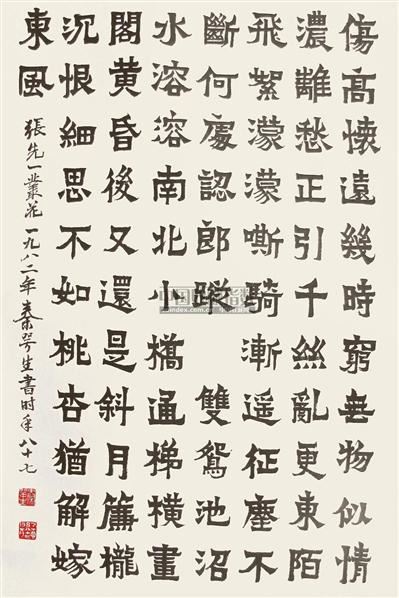 傷高懷遠幾時窮無物似情
濃離愁正引千絲亂更東陌
飛絮濛濛嘶騎漸遥征塵不
斷何處認郎蹤 雙鴛池沼
水溶溶南北小橋通梯橫畫
閣黃昏後又還是斜月簾櫳
沉恨細思不如桃杏猶解嫁
東風
張先一叢花一九八二年秦咢生書时年八十七